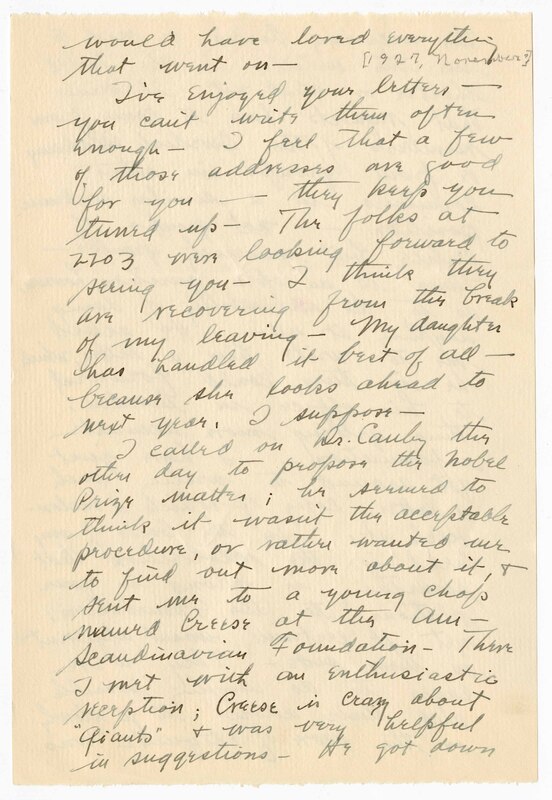 would have loved everything
that went on — [1927, November?]
I've enjoyed your letters —
you can't write them often
enough — I feel that a few
of those addresses are good
for you — they keep you
tuned up — The folks at
2203 were looking forward to
seeing you — I think they
are recovering from the break
of my leaving — My daughter
has handled it best of all —
because she looks ahead to
next year, I suppose —
I called on Dr. Canby the
other day to propose the Nobel
Prize matter; he seemed to
think it wasn't the acceptable
procedure, or rather wanted me
to find out more about it, &
sent me to a young chap
named Creese at the Am —
Scandinavian Foundation — There
I met with an enthusiastic
reception; Creese is crazy about
"Giants" & was very helpful
in suggestions — He got down